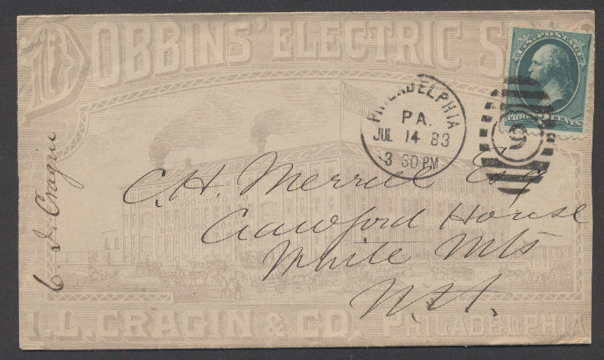 DOBBINS' ELECTRIC S
U.S. POSTAGE
CENTS
PHILADELPHIA
PA.
JUL 14 83
3 30 PM
9
C.H. Merrill Esq
Crawford House
White Mts
N.H.
I.L. CRAGIN & CO. PHILADELPHIA
Cragin